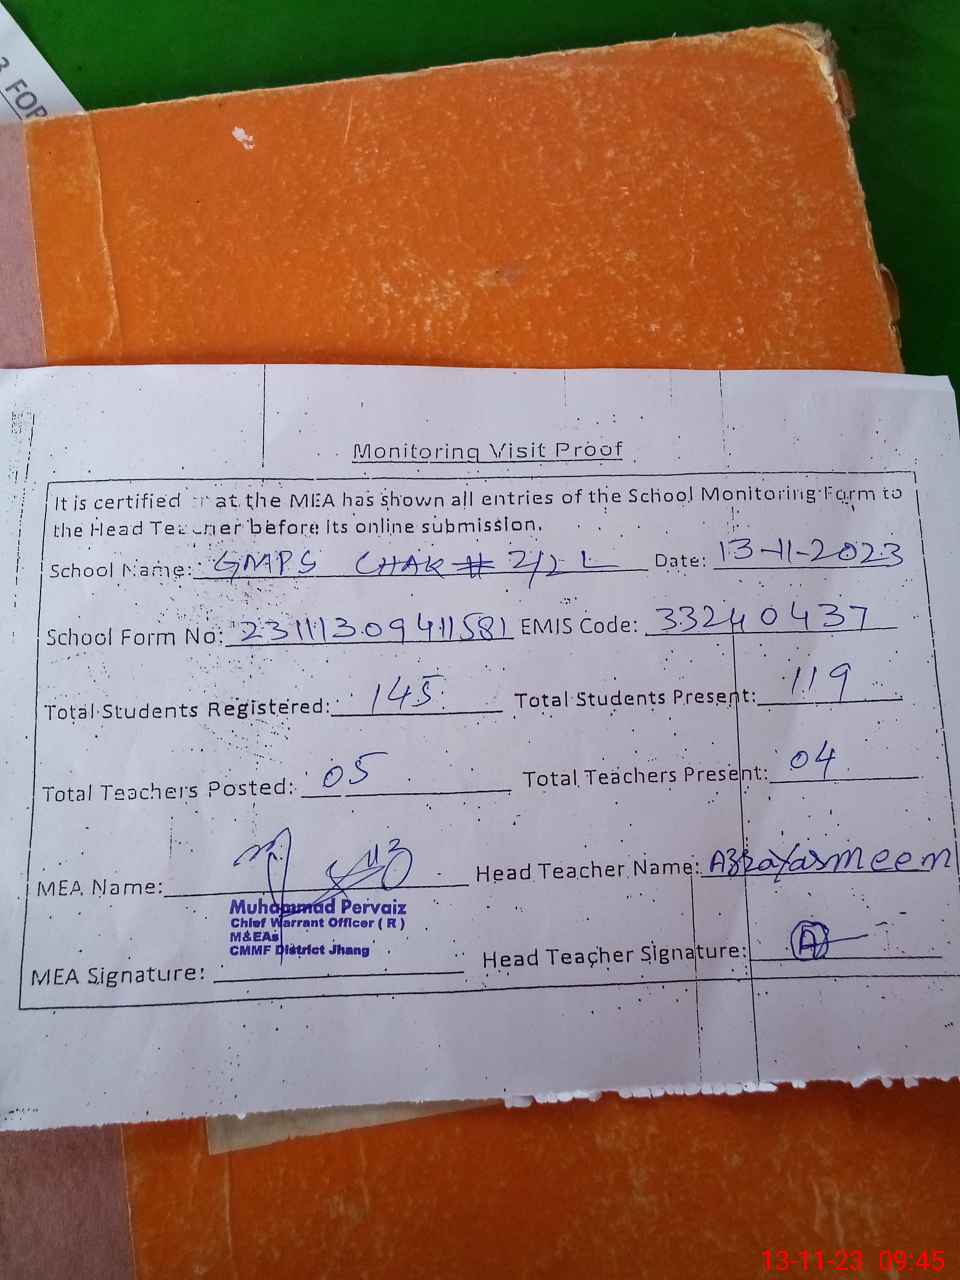 3 FOR
Monitoring Visit Proof
It is certified that the MEA has shown all entries of the School Monitoring Form to
the Head Teacher before its online submission.
School Name: GMPS CHAK # 2/2 L Date: 13-11-2023
School Form No: 23111309411581 EMIS Code: 33240437
Total Students Registered: 145 Total Students Present: 119
Total Teachers Posted: 05 Total Teachers Present: 04
MEA Name: Head Teacher Name: Azra Yasmeen
Muhammad Pervaiz
Chief Warrant Officer ( R )
M&EAs
CMMF District Jhang
MEA Signature: Head Teacher Signature:
13-11-23 09:45